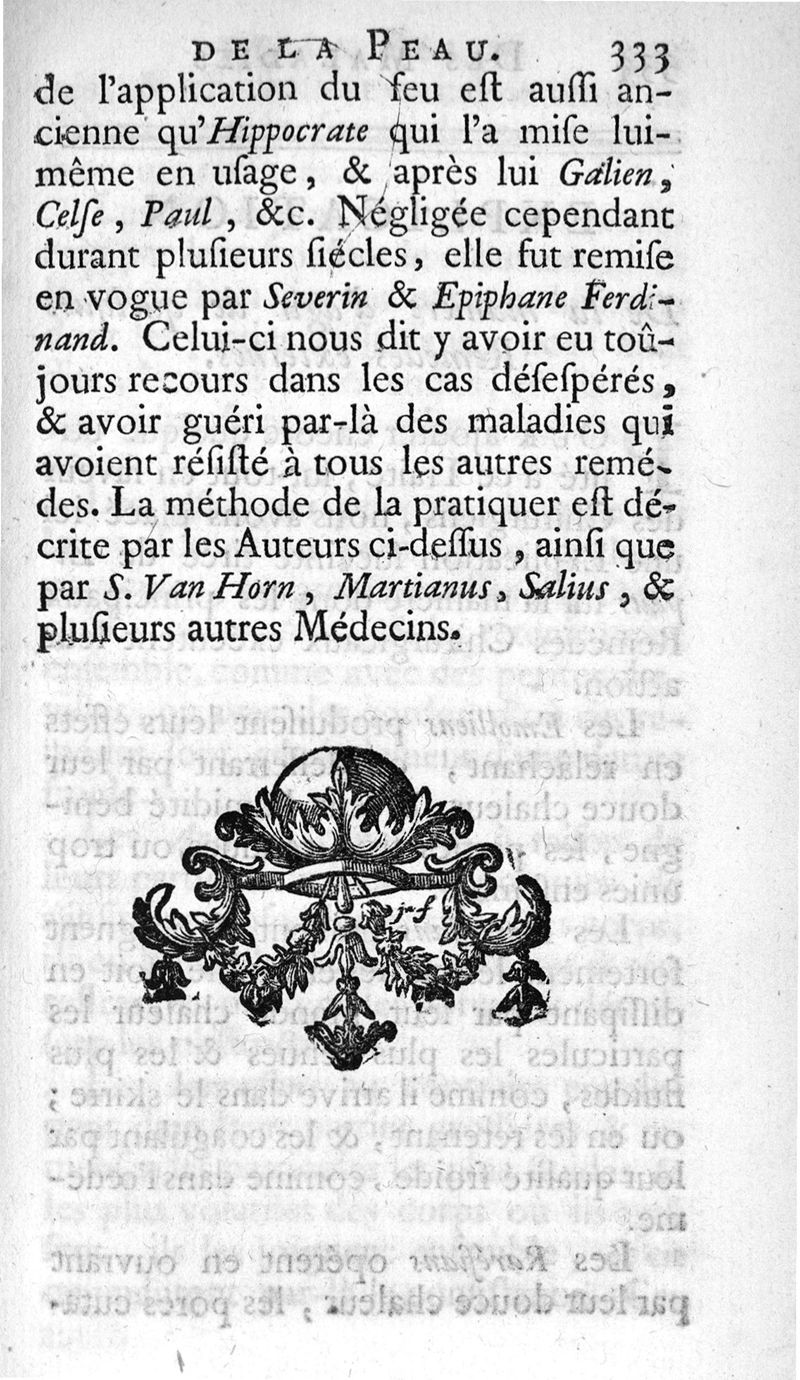 DE LA PEAU. 333
de l'application du feu eſt auſſi an-
cienne qu'Hippocrate qui l'a miſe lui-
même en uſage, & après lui Galien,
Celſe, Paul, &c. Négligée cependant
durant pluſieurs ſiécles, elle fut remiſe
en vogue par Severin & Epiphane Ferdi-
nand. Celui-ci nous dit y avoir eu toû-
jours recours dans les cas déſeſpérés,
& avoir guéri par-là des maladies qui
avoient réſiſté à tous les autres remé-
des. La méthode de la pratiquer eſt dé-
crite par les Auteurs ci-deſſus, ainſi que
par S. Van Horn, Martianus, Salius, &
pluſieurs autres Médecins.